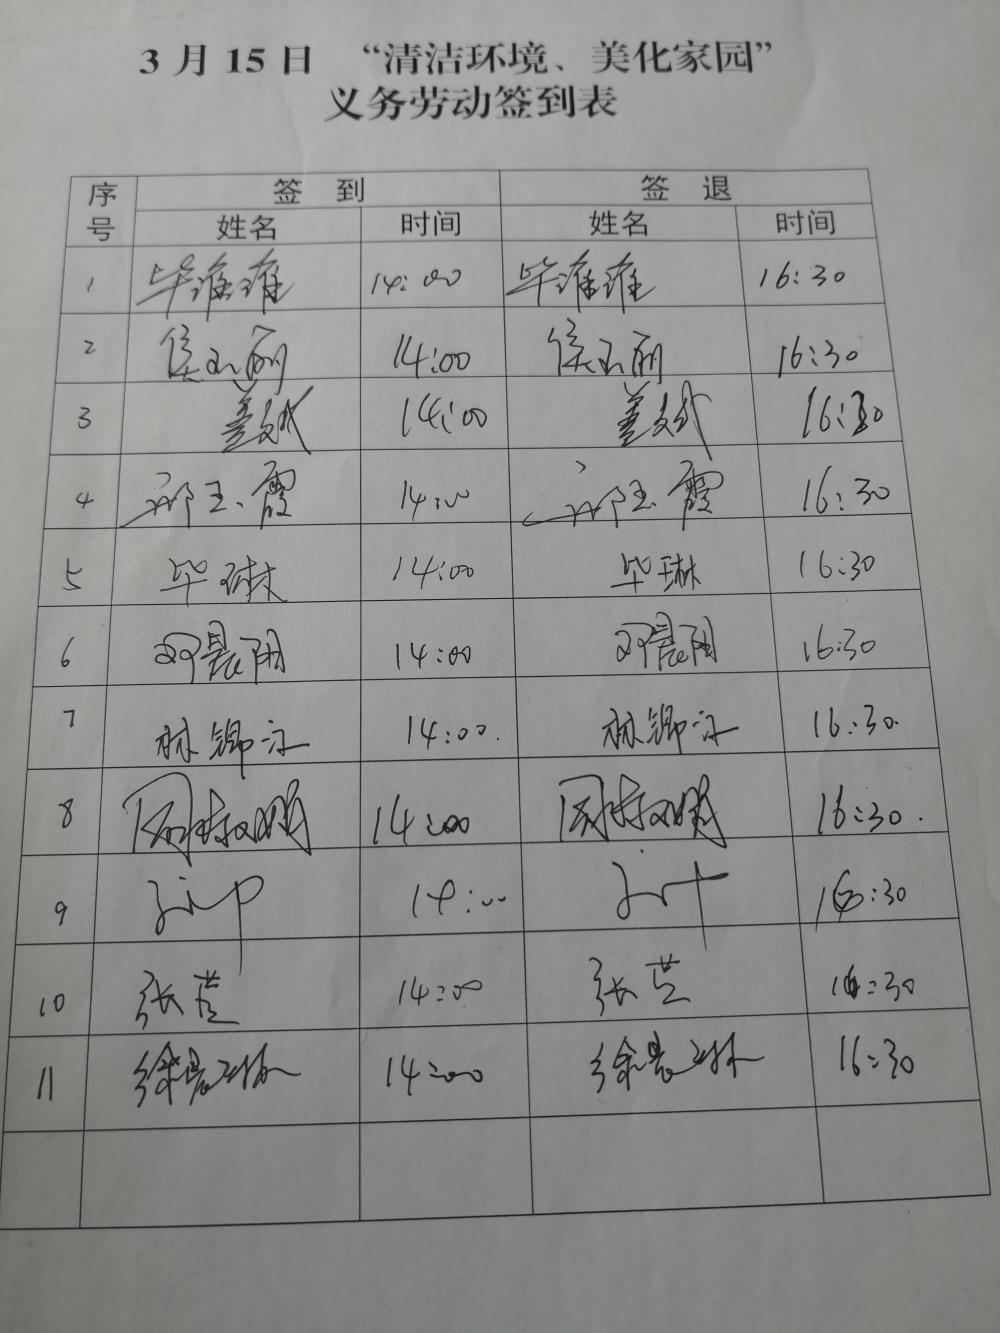 3月15日 “清洁环境、美化家园”
义务劳动签到表
序号 签 到 签 退
姓名 时间 姓名 时间
1 毕维维 14:00 毕维维 16:30
2 侯玉丽 14:00 侯玉丽 16:30
3 姜文斌 14:00 姜文斌 16:30
4 祁玉霞 14:00 祁玉霞 16:30
5 毕琳 14:00 毕琳 16:30
6 邓晨阳 14:00 邓晨阳 16:30
7 林卿 14:00. 林卿 16:30.
8 周 鹏 14:00 周 鹏 16:30.
9 14:00 16:30
10 张芸 14:00 张芸 16:30
11 徐晨琳 14:00 徐晨琳 16:30